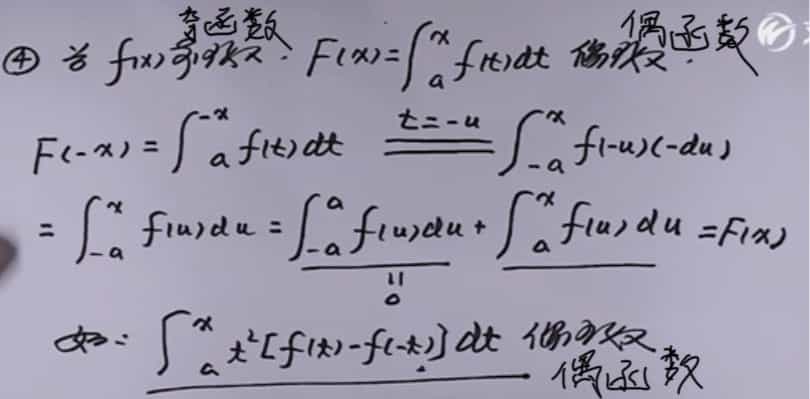 奇函数 偶函数
④ 若 f(x) 奇函数. F(x)=∫_a^x f(t)dt 偶函数.
F(-x)=∫_a^{-x} f(t)dt \xlongequal{t=-u} ∫_{-a}^x f(-u)(-du)
=∫_{-a}^x f(u)du=∫_{-a}^a f(u)du+∫_a^x f(u)du=F(x)
‖
0
如: ∫_a^x t²[f(t)-f(-t)]dt 偶函数
偶函数